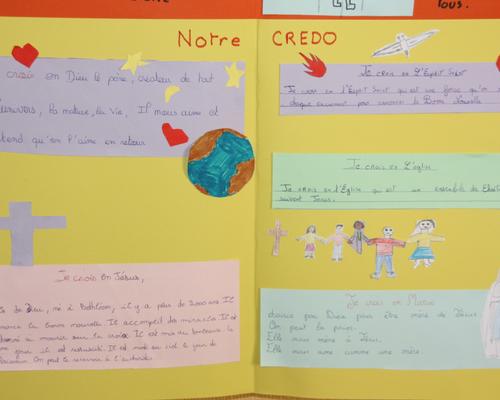 TOUS.
Notre CREDO
crois en Dieu le père, créateur de tout
la nature, la vie, Il nous aime et
qu'on l'aime en retour
Je crois en l'Esprit Saint
Je crois en l'Esprit Saint qui est une force qu'on
chaque pour annoncer la Bonne Nouvelle
Je crois en l'église
Je crois en l'Eglise qui est un ensemble de
suivent Jésus.
Je crois en Jésus,
de Dieu, né à Bethléem, il y a plus de 2000 ans. Il
la bonne nouvelle. Il accomplit des miracles. Il est
à mourir sur la croix. Il est mis au tombeau, le
jour il est ressuscité. Il est monté au ciel le jour de
On peut le recevoir à l'
Je crois en Marie
choisie par Dieu pour être mère de Jésus
On peut la prier.
Elle nous mène à Jésus.
Elle nous aime comme une mère.